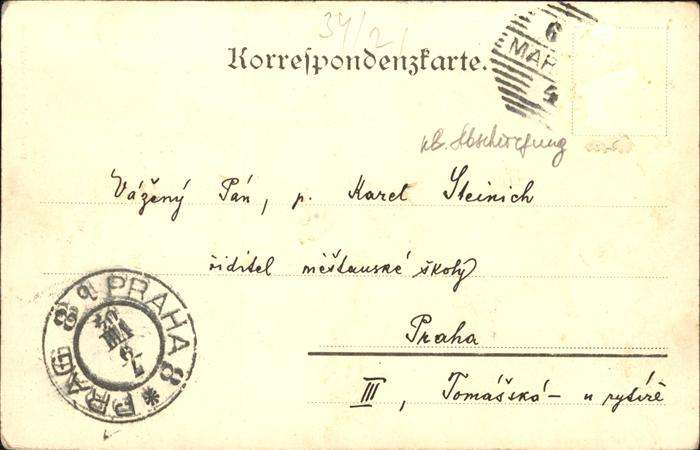 34/2
Korrespondenzkarte.
6
MAR
Vážený Pán, p. Karel Steinich
řiditel měšťanské školy
Praha
III, Tomášská – u rytíře
PRAHA 8
PRAG 8